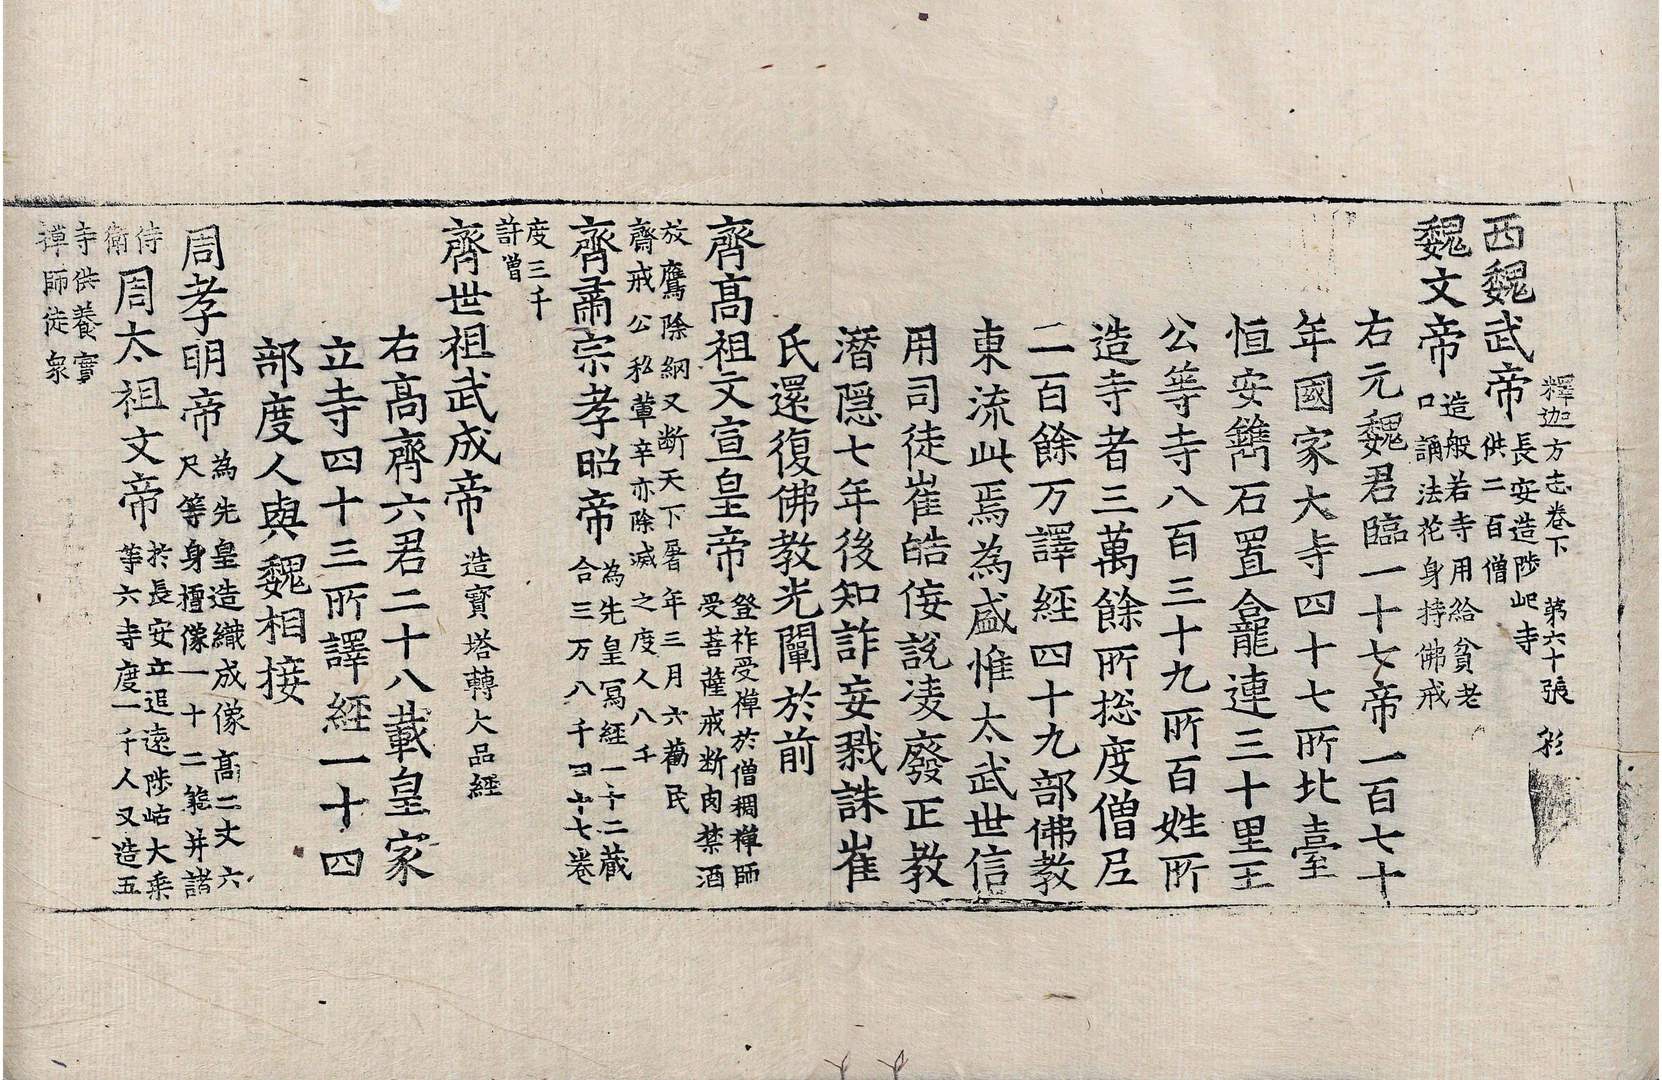 釋迦方志卷下　第六十張　彩
西魏武帝長安造陟屺寺供二百僧
魏文帝造般若寺用給貧老口誦法花身持佛戒
右元魏君臨一十七帝一百七十
年國家大寺四十七所北臺
恒安鐫石置龕連三十里王
公等寺八百三十九所百姓所
造寺者三萬餘所捴度僧尼
二百餘万譯經四十九部佛教
東流此焉為盛惟太武世信
用司徒崔皓佞說凌廢正教
潛隱七年後知詐妄戮誅崔
氏還復佛教光闡於前
齊髙祖文宣皇帝登祚受禪於僧稠禪師受菩薩戒断肉禁酒
放鷹除網又断天下屠年三月六勸民齋戒公私葷辛亦除滅之度人八千
齊肅宗孝昭帝為先皇寫經一十二藏合三万八千四十七卷
度三千許僧
齊世祖武成帝造寶塔轉大品經
右髙齊六君二十八載皇家
立寺四十三所譯經一十四
部度人與魏相接
周孝明帝為先皇造織成像髙二丈六尺等身檀像一十二軀并諸
侍衛
周太祖文帝於長安立追遠陟岵大乘等六寺度一千人又造五
寺供養實禪師徒衆